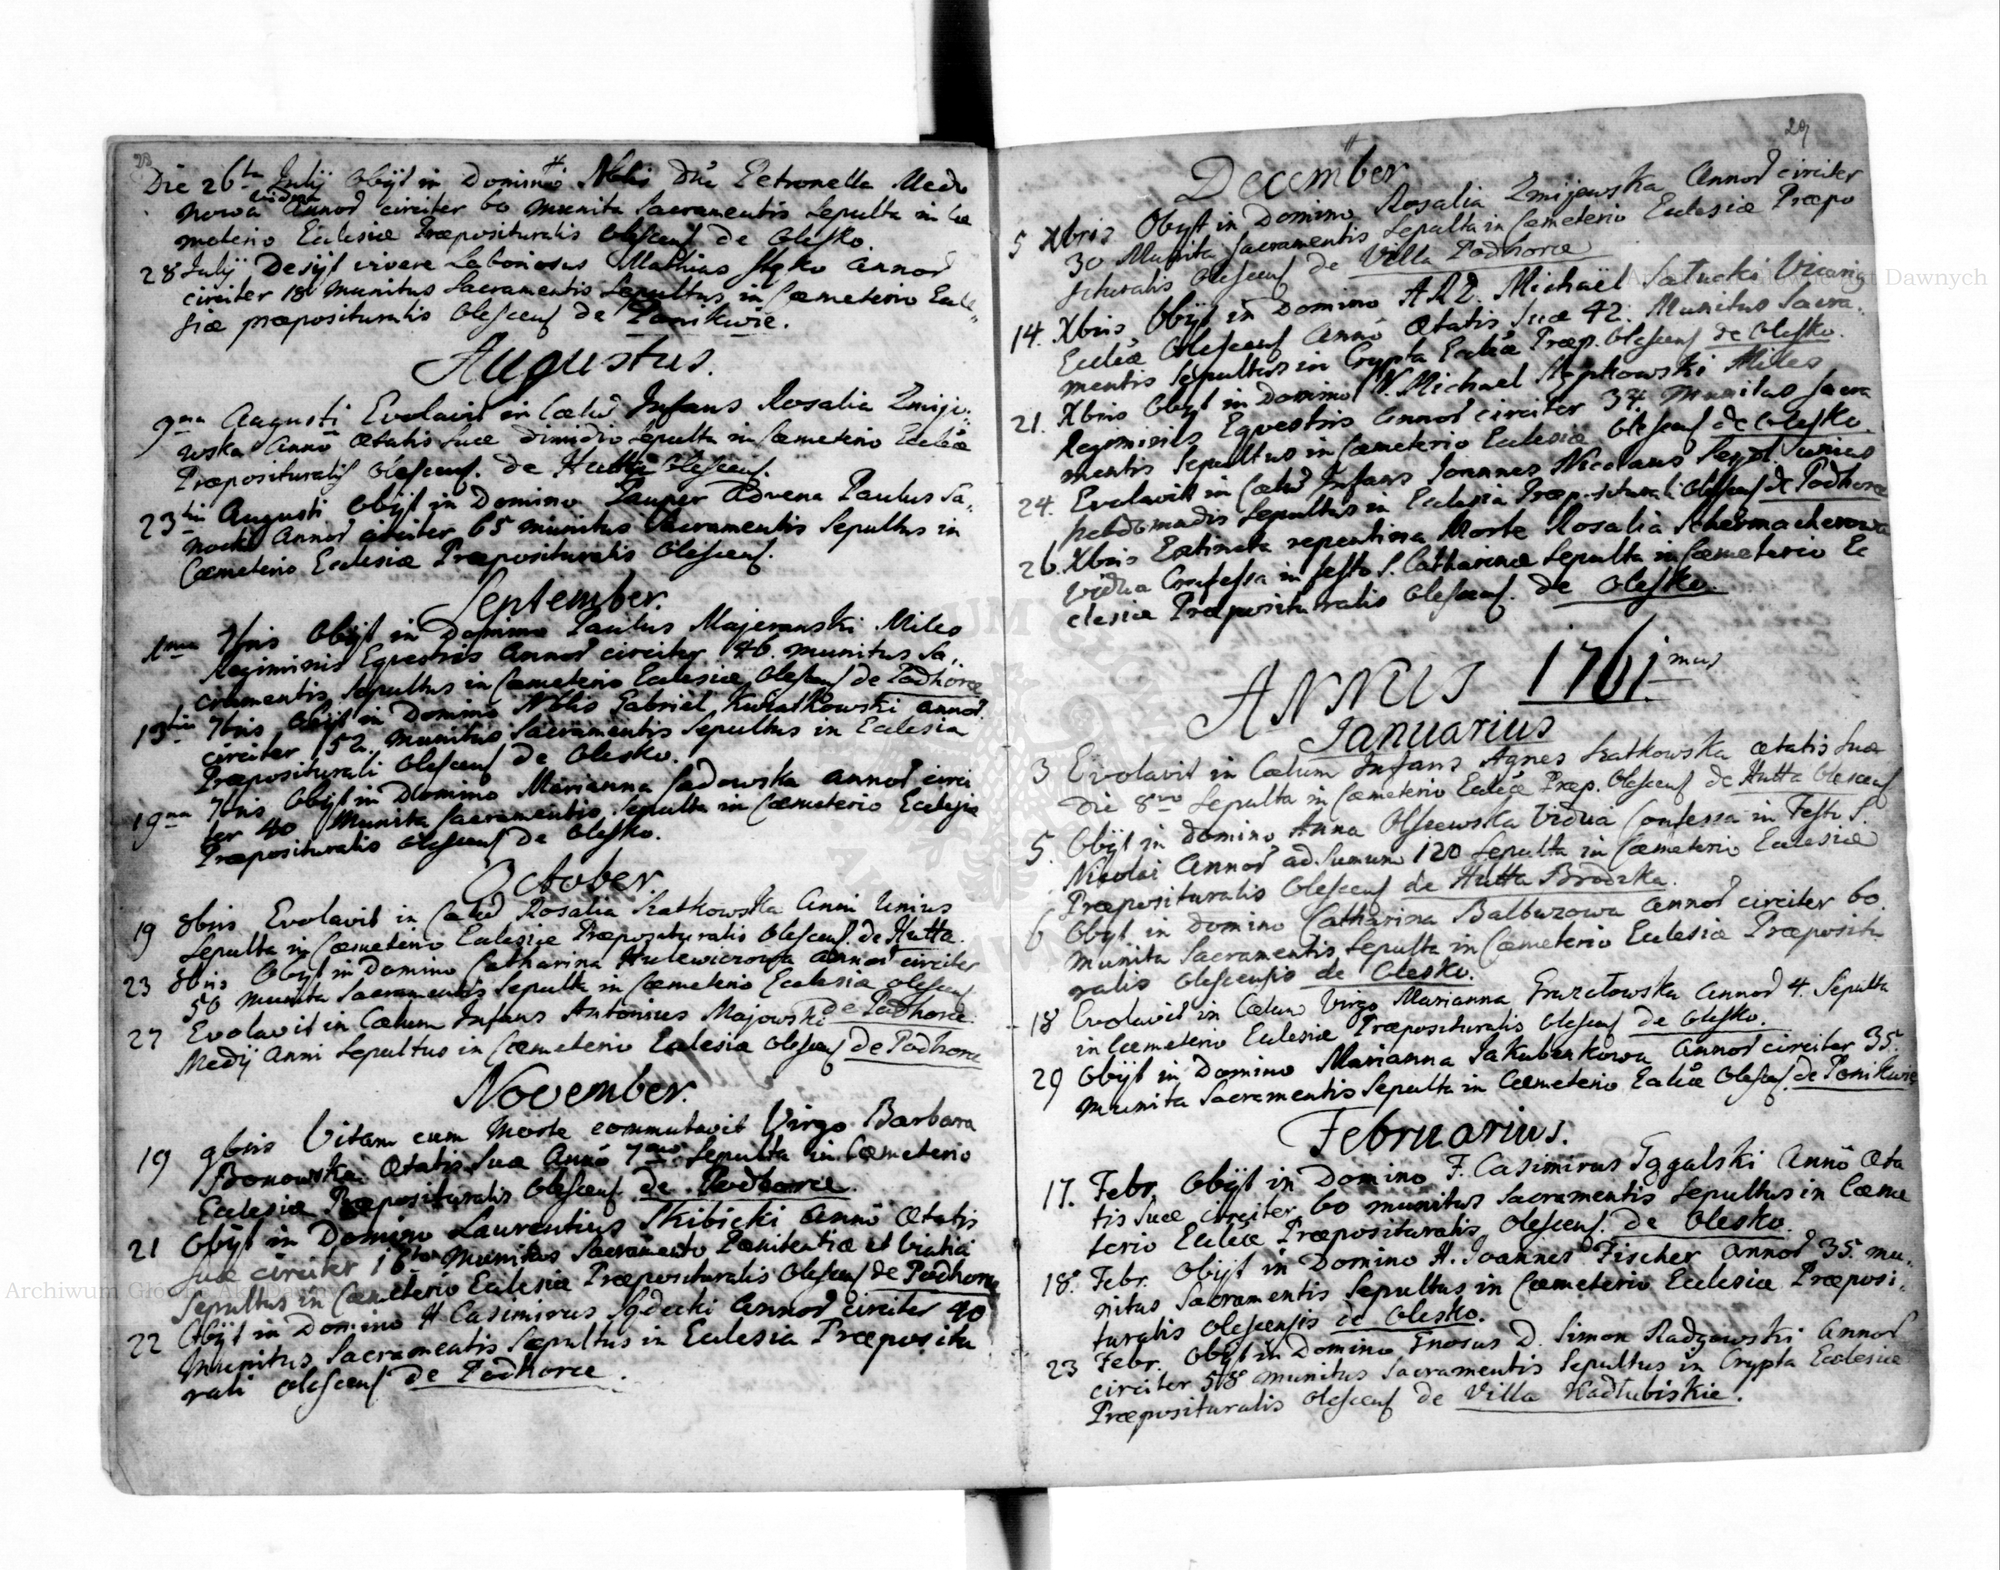 28
Die 26ta Julij Obijt in Domino Nblis Dna Petronella Medu
nowa vidua Annor circiter 60 munita Sacramentis Sepulta in Cæ
meterio Ecclesiæ Præposituralis Olescens de Olesko.
28 Julij Desijt vivere Laboriosus Mathias Annor
circiter 18 munitus Sacramentis Sepultus in Cæmeterio Eccle,,
siæ præposituralis Olescens de Ponikwie.
Augustus.
9na Augusti Evolavit in Cælu Infans Rosalia Zmijo,,
wska Anno Ætatis suæ dimidio Sepulta in Cæmeterio Eccliæ
Præposituralis Olescens. de Hutta Olescens.
23tia Augusti Obijt in Domino Pauper Advena Paulus Sa,,
nocki Annor circiter 65 munitus Sacramentis Sepultus in
Cæmeterio Ecclesiæ Præposituralis Olescens.
September.
1ma 7bris Obijt in Domino Paulus Majeranski Miles
Regiminis Equestris Annor circiter 46. munitus Sa,,
cramentis Sepultus in Cæmeterio Ecclesiæ Olescens de Podhorce
13tia 7bris Obijt in Domino Nblis Gabriel Kwiatkowski Annor.
circiter 52. munitus Sacramentis Sepultus in Ecclesia
Præpositurali Olescens de Olesko.
19na 7bris Obijt in Domino Marianna Sadowska Annor circi
ter 40 Munita Sacramentis Sepulta in Cæmeterio Ecclesiæ
Præposituralis Olescens de Olesko.
October.
19 8bris Evolavit in Cælu Rosalia Kratkowska Anni Unius
Sepulta in Cæmeterio Ecclesiæ Præposituralis Olescens. de Hutta.
23 8bris Obijt in Domino Catharina Hulewiczowa Annor circiter
50 munita Sacramentis Sepulta in Cæmeterio Ecclesiæ Olescens
de Podhorce.
27 Evolavit in Cælum Infans Antonius Majowski
Medij Anni Sepultus in Cæmeterio Ecclesiæ Olescens de Podhorce
November.
19 9bris Vitam cum Morte commutavit Virgo Barbara
Bonowska Ætatis Suæ Anno 7mo Sepulta in Cæmeterio
Ecclesiæ Præposituralis Olescens de Podhorce.
21 Obijt in Domino Laurentius Skibicki Anno Ætatis
Suæ circiter 18 munitus Sacramento Pænitentiæ et Viatici
Sepultus in Cæmeterio Ecclesiæ Præposituralis Olescens de Podhorce
22 Obijt in Domino Casimirus Sądecki Annor circiter 40
munitus Sacramentis Sepultus in Ecclesia Præpositu
rali Olescens de Podhorce.
29
December
5 Xbris Obijt in Domino Rosalia Zmijewska Annor circiter
30 Munita Sacramentis Sepulta in Cæmeterio Ecclesiæ Præpo
situralis Olescens de Villa Podhorce
14. Xbris Obijt in Domino ARD. Michaël Vicarig
Eccliæ Olescens Anno Ætatis Suæ 42. Munitus Sacra,,
mentis Sepultus in Crypta Eccliæ Præp. Olescens de Olesko.
21. Xbris Obijt in Domino N. Michael Miles
Regiminis Equestris Annor circiter 34. Munitus Sacra
mentis Sepultus in Cæmeterio Ecclesiæ Olescens de Olesko.
24. Evolavit in Cælu Infans Joannes Nicolaus Unius
hebdomadis Sepultus in Ecclesia Præposituralis Olescens de Podhorce
26. Xbris Extincta repentina Morte Rosalia Schermacherowa
Vidua Confessa in festo S. Catharinæ Sepulta in Cæmeterio Ec
clesiæ Præposituralis Olescens. de Olesko.
ANNUS 1761mus
Januarius
3 Evolavit in Cælum Infans Agnes Kratkowska ætatis Suæ
Die 8vo Sepulta in Cæmeterio Eccliæ Præp. Olescens de Hutta Olescens
5. Obijt in Domino Anna Olszewska Vidua Confessa in Festo S.
Nicolai Annor ad sumum 120 Sepulta in Cæmeterio Ecclesiæ
Præposituralis Olescens de Hutta Brodzka.
6 Obijt in Domino Catharina Balbuzowa Annor circiter 60.
munita Sacramentis Sepulta in Cæmeterio Ecclesiæ Præpositu
ralis Olescensis de Olesko.
18 Evolavit in Cælum Virgo Marianna Annor 4. Sepulta
in Cæmeterio Ecclesiæ Præposituralis Olescens de Olesko.
29 Obijt in Domino Marianna Jakubenkowa Annor circiter 35.
munita Sacramentis Sepulta in Cæmeterio Eccliæ Olescens. de Ponikwie
Februarius.
17. Febr. Obijt in Domino F. Casimirus Anno Æta
tis Suæ circiter 60 munitus Sacramentis Sepultus in Cæme
terio Eccliæ Præposituralis Olescens. de Olesko.
18. Febr. Obijt in Domino H. Joannes Fischer Annor 35. mu,,
nitus Sacramentis Sepultus in Cæmeterio Ecclesiæ Præposi,,
turalis Olescensis de Olesko.
23 Febr. Obijt in Domino Gnosus D. Simon Radzowski Annor
circiter 58 munitus Sacramentis Sepultus in Crypta Ecclesiæ
Præposituralis Olescens de Villa Kadłubiskie.
Archiwum Główne Akt Dawnych
Archiwum Główne Akt Dawnych